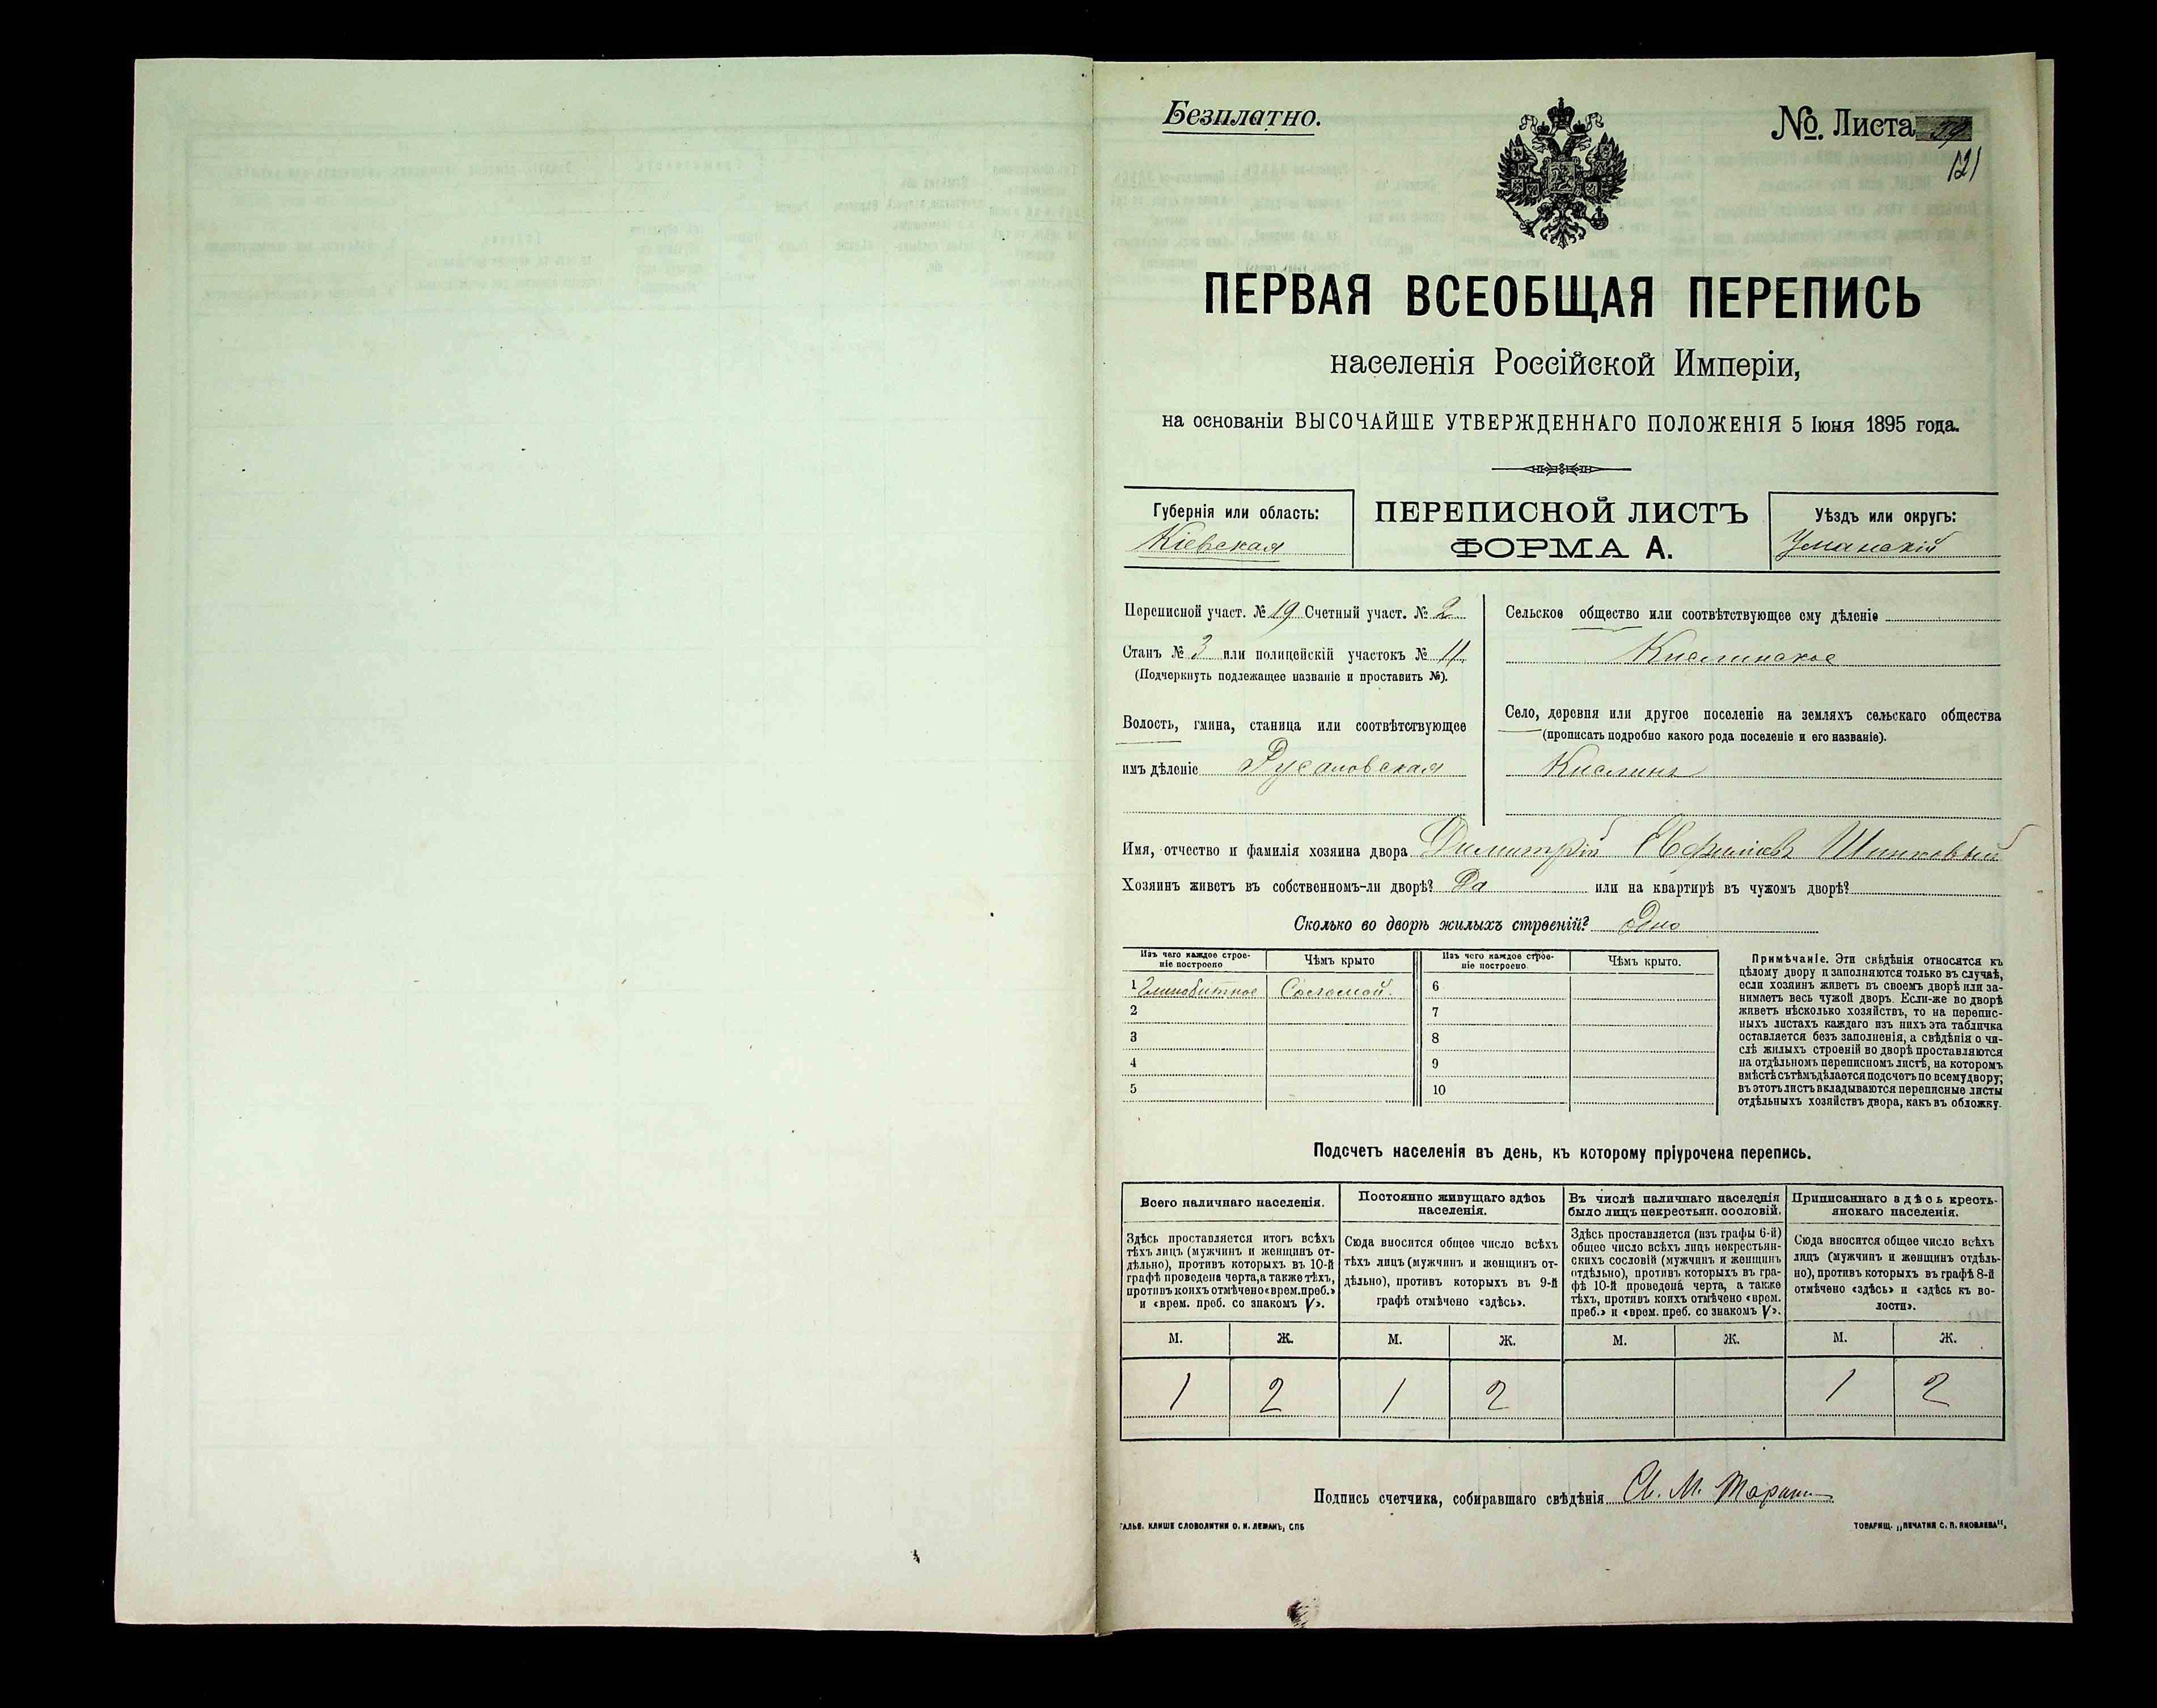 Безплатно.
№. Листа
121
ПЕРВАЯ ВСЕОБЩАЯ ПЕРЕПИСЬ
населенія Россійской Имперіи,
на основаніи ВЫСОЧАЙШЕ УТВЕРЖДЕННАГО ПОЛОЖЕНІЯ 5 Іюня 1895 года.
Губернія или область:
Кіевская
ПЕРЕПИСНОЙ ЛИСТЪ
ФОРМА А.
Уѣздъ или округъ:
Уманскій
Переписной участ. № 19 Счетный участ. № 2
Станъ № 3 или полицейскій участокъ № 11
(Подчеркнуть подлежащее названіе и проставить №).
Волость, гмина, станица или соотвѣтствующее
имъ дѣленіе Русаловская
Сельское общество или соотвѣтствующее ему дѣленіе
Кислинское
Село, деревня или другое поселеніе на земляхъ сельскаго общества
(прописать подробно какого рода поселеніе и его названіе).
Кислинъ
Имя, отчество и фамилія хозяина двора Димитрій
Хозяинъ живетъ въ собственномъ-ли дворѣ? Да или на квартирѣ въ чужомъ дворѣ?
Сколько во дворѣ жилыхъ строеній? Одно
Изъ чего каждое строе-
ніе построено
Чѣмъ крыто
Изъ чего каждое строе-
ніе построено
Чѣмъ крыто.
1 Глинобитное Соломой. 6
2 7
3 8
4 9
5 10
Примѣчаніе. Эти свѣдѣнія относятся къ
цѣлому двору и заполняются только въ случаѣ,
если хозяинъ живетъ въ своемъ дворѣ или за-
нимаетъ весь чужой дворъ. Если-же во дворѣ
живетъ нѣсколько хозяйствъ, то на перепис-
ныхъ листахъ каждаго изъ нихъ эта табличка
оставляется безъ заполненія, а свѣдѣнія о чи-
слѣ жилыхъ строеній во дворѣ проставляются
на отдѣльномъ переписномъ листѣ, на которомъ
вмѣстѣ съ тѣмъ дѣлается подсчетъ по всему двору;
въ этотъ листъ вкладываются переписные листы
отдѣльныхъ хозяйствъ двора, какъ въ обложку.
Подсчетъ населенія въ день, къ которому пріурочена перепись.
Всего наличнаго населенія.
Здѣсь проставляется итогъ всѣхъ
тѣхъ лицъ (мужчинъ и женщинъ от-
дѣльно), противъ которыхъ въ 10-й
графѣ проведена черта, а также тѣхъ,
противъ коихъ отмѣчено «врем. преб.»
и «врем. преб. со знакомъ V».
Постоянно живущаго здѣсь
населенія.
Сюда вносится общее число всѣхъ
тѣхъ лицъ (мужчинъ и женщинъ от-
дѣльно), противъ которыхъ въ 9-й
графѣ отмѣчено «здѣсь».
Въ числѣ наличнаго населенія
было лицъ некрестьян. сословій.
Здѣсь проставляется (изъ графы 6-й)
общее число всѣхъ лицъ некрестьян-
скихъ сословій (мужчинъ и женщинъ
отдѣльно), противъ которыхъ въ гра-
фѣ 10-й проведена черта, а также
тѣхъ, противъ коихъ отмѣчено «врем.
преб.» и «врем. преб. со знакомъ V».
Приписаннаго здѣсь кресть-
янскаго населенія.
Сюда вносится общее число всѣхъ
лицъ (мужчинъ и женщинъ отдѣль-
но), противъ которыхъ въ графѣ 8-й
отмѣчено «здѣсь» и «здѣсь къ во-
лости».
М. Ж. М. Ж. М. Ж. М. Ж.
1 2 1 2 1 2
Подпись счетчика, собиравшаго свѣдѣнія
ГАЛЬВ. КЛИШЕ СЛОВОЛИТНИ О. И. ЛЕМАНЪ, СПБ
ТОВАРИЩ. „ПЕЧАТНЯ С. П. ЯКОВЛЕВА“,